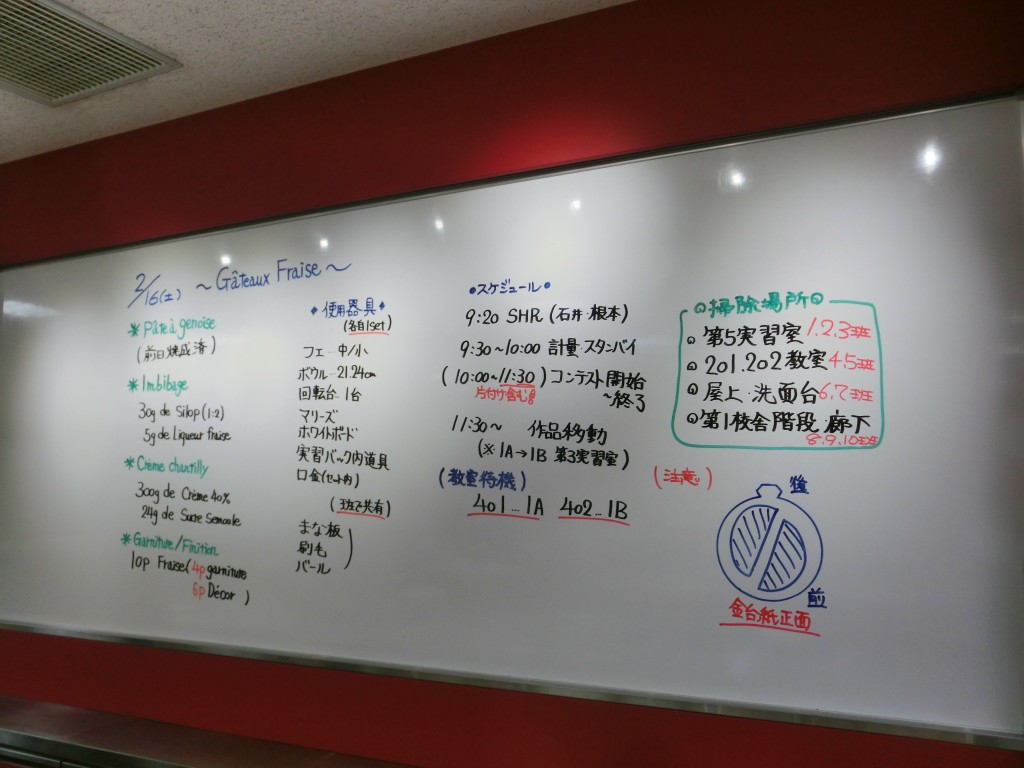 2/16(土) ～ Gâteaux Fraise ～
* Pâte à genoise
(前日焼成済)
* Imbibage
30g de Silop (1:2)
5g de Liqueur fraise
* Crème chantilly
300g de Crème 40%
24g de Sucre Semoule
* Garniture/Finition
10p Fraise(4p garniture
6p Décor )
◆ 使用器具 ◆
(各自1set)
フェ 中/小
ボウル 21.24cm
回転台 1台
マリーズ
ホワイトボード
実習バック内道具
口金(セット内)
(班で共有)
まな板
刷毛
バール
●スケジュール●
9:20 SHR (石井・根本)
9:30～10:00 計量・スタンバイ
(10:00～11:30) コンテスト開始
片付け含む!! ～終了
11:30～ 作品移動
(※ 1A→1B 第3実習室)
(教室待機)
401...1A 402...1B
◎掃除場所◎
◎第5実習室 1.2.3班
◎201.202教室 4.5班
◎屋上・洗面台 6.7班
◎第1校舎階段・廊下
8.9.10班
(注意!!)
後
前
金台紙正面